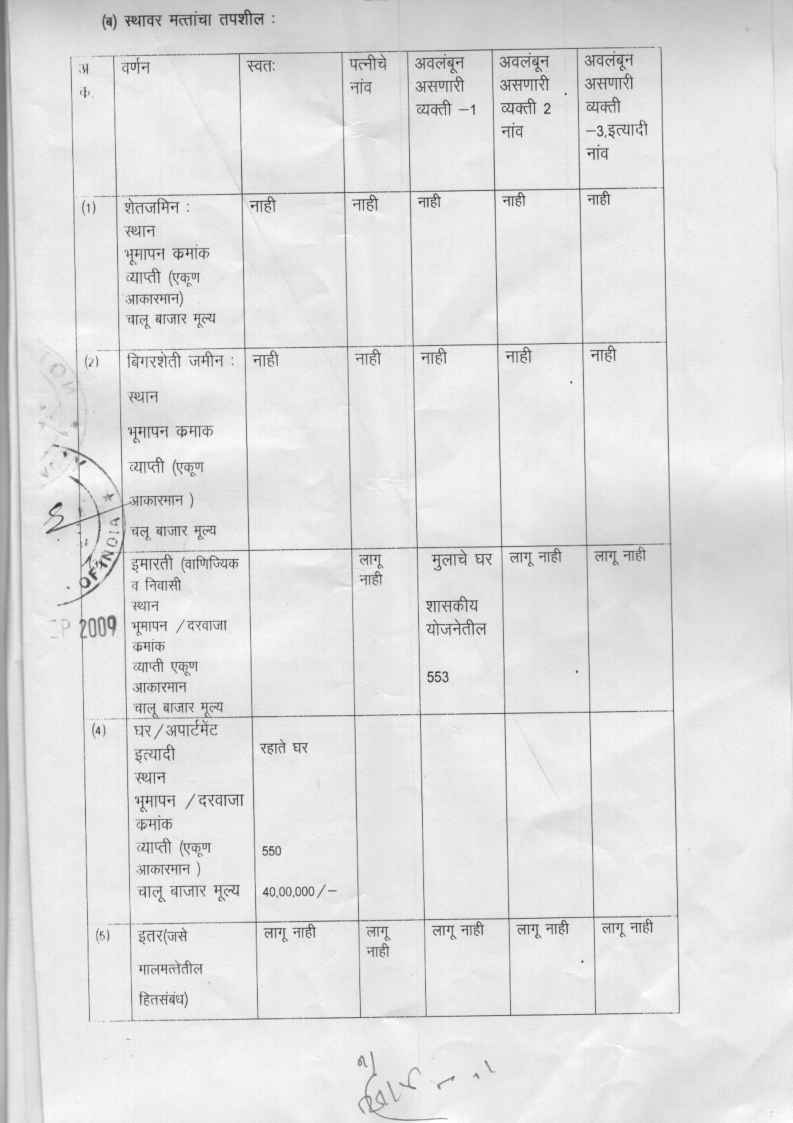 (ब) स्थावर मत्तांचा तपशील :
अ क.
वर्णन
स्वतः
पत्नीचे नांव
अवलंबून असणारी व्यक्ती –1
अवलंबून असणारी व्यक्ती 2 नांव
अवलंबून असणारी व्यक्ती –3,इत्यादी नांव
(1)
शेतजमिन :
स्थान
भूमापन कमांक
व्याप्ती (एकूण
आकारमान)
चालू बाजार मूल्य
नाही
नाही
नाही
नाही
नाही
(2)
बिगरशेती जमीन :
स्थान
भूमापन कमाक
व्याप्ती (एकूण
आकारमान )
चलू बाजार मूल्य
नाही
नाही
नाही
नाही
नाही
इमारती (वाणिज्यिक
व निवासी
स्थान
भूमापन / दरवाजा
कमांक
व्याप्ती एकूण
आकारमान
चालू बाजार मूल्य
लागू
नाही
मुलाचे घर
शासकीय
योजनेतील
553
लागू नाही
लागू नाही
OF INDIA
2009
(4)
घर / अपार्टमेंट
इत्यादी
स्थान
भूमापन / दरवाजा
कमांक
व्याप्ती (एकूण
आकारमान )
चालू बाजार मूल्य
रहाते घर
550
40,00,000 / –
(5)
इतर(जसे
मालमत्तेतील
हितसंबंध)
लागू नाही
लागू
नाही
लागू नाही
लागू नाही
लागू नाही